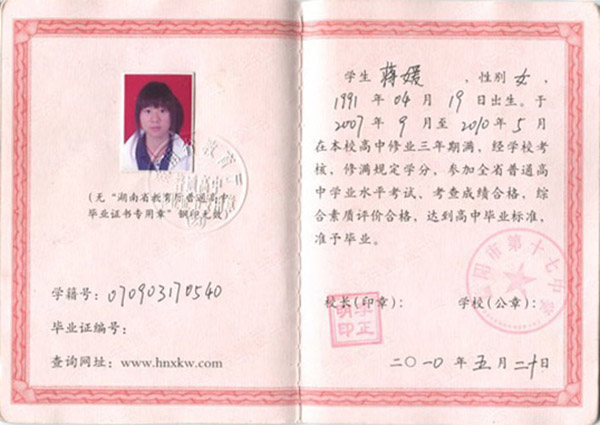 (无“湖南省教育厅普通高中
毕业证书专用章”钢印无效)
学籍号: 070903170540
毕业证编号:
查询网址: www.hnxkw.com
学生 蒋媛 , 性别 女 ,
1991 年 04 月 19 日出生。于
2007 年 9 月至 2010 年 5 月
在本校高中修业三年期满, 经学校考
核, 修满规定学分, 参加全省普通高
中学业水平考试、考查成绩合格, 综
合素质评价合格, 达到高中毕业标准,
准予毕业。
校长(印章): 学校(公章):
阳市第十七中学
二〇一〇年 五 月 二十 日